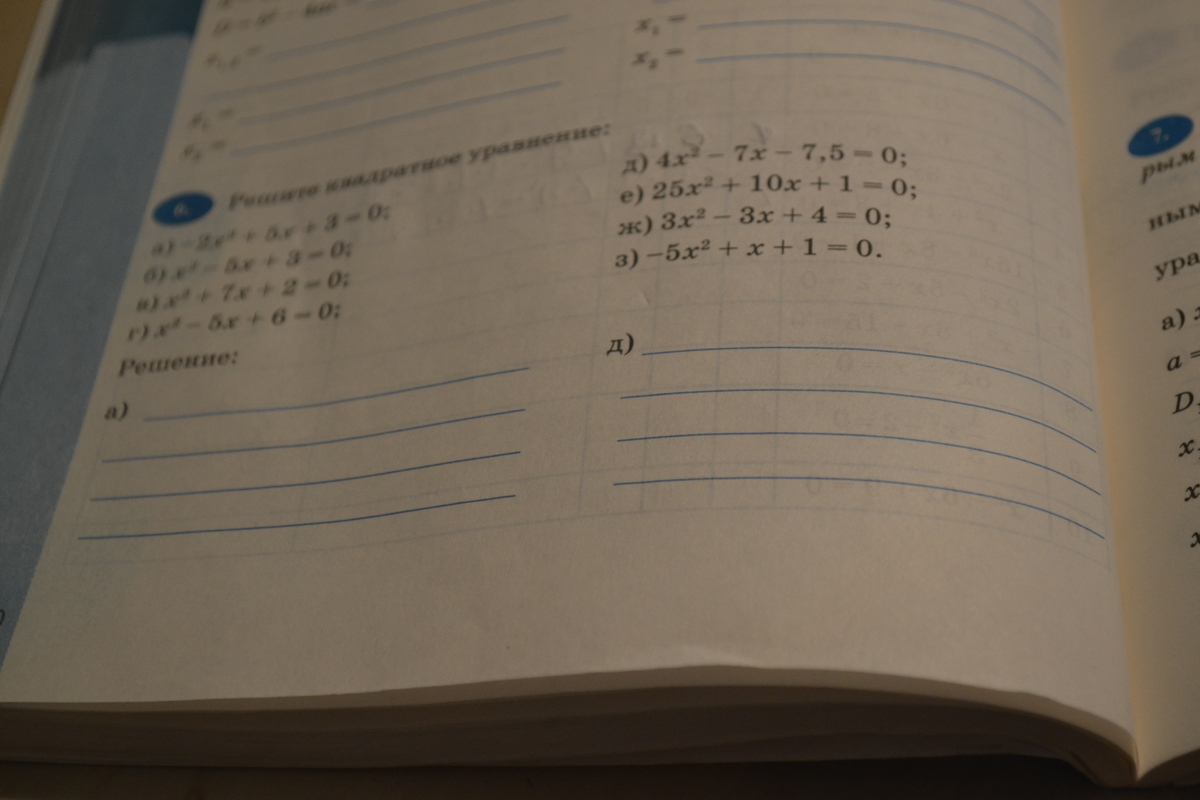 x₁ =
x₂ =
x₁ =
x₂ =
6. Решите квадратное уравнение:
а) −2x² + 5x + 3 = 0;
б) x² − 5x + 3 = 0;
в) x² + 7x + 2 = 0;
г) x² − 5x + 6 = 0;
д) 4x² − 7x − 7,5 = 0;
е) 25x² + 10x + 1 = 0;
ж) 3x² − 3x + 4 = 0;
з) −5x² + x + 1 = 0.
Решение:
а)
д)
7.
рым
ным
ура
а)
a =
D
x
x
x